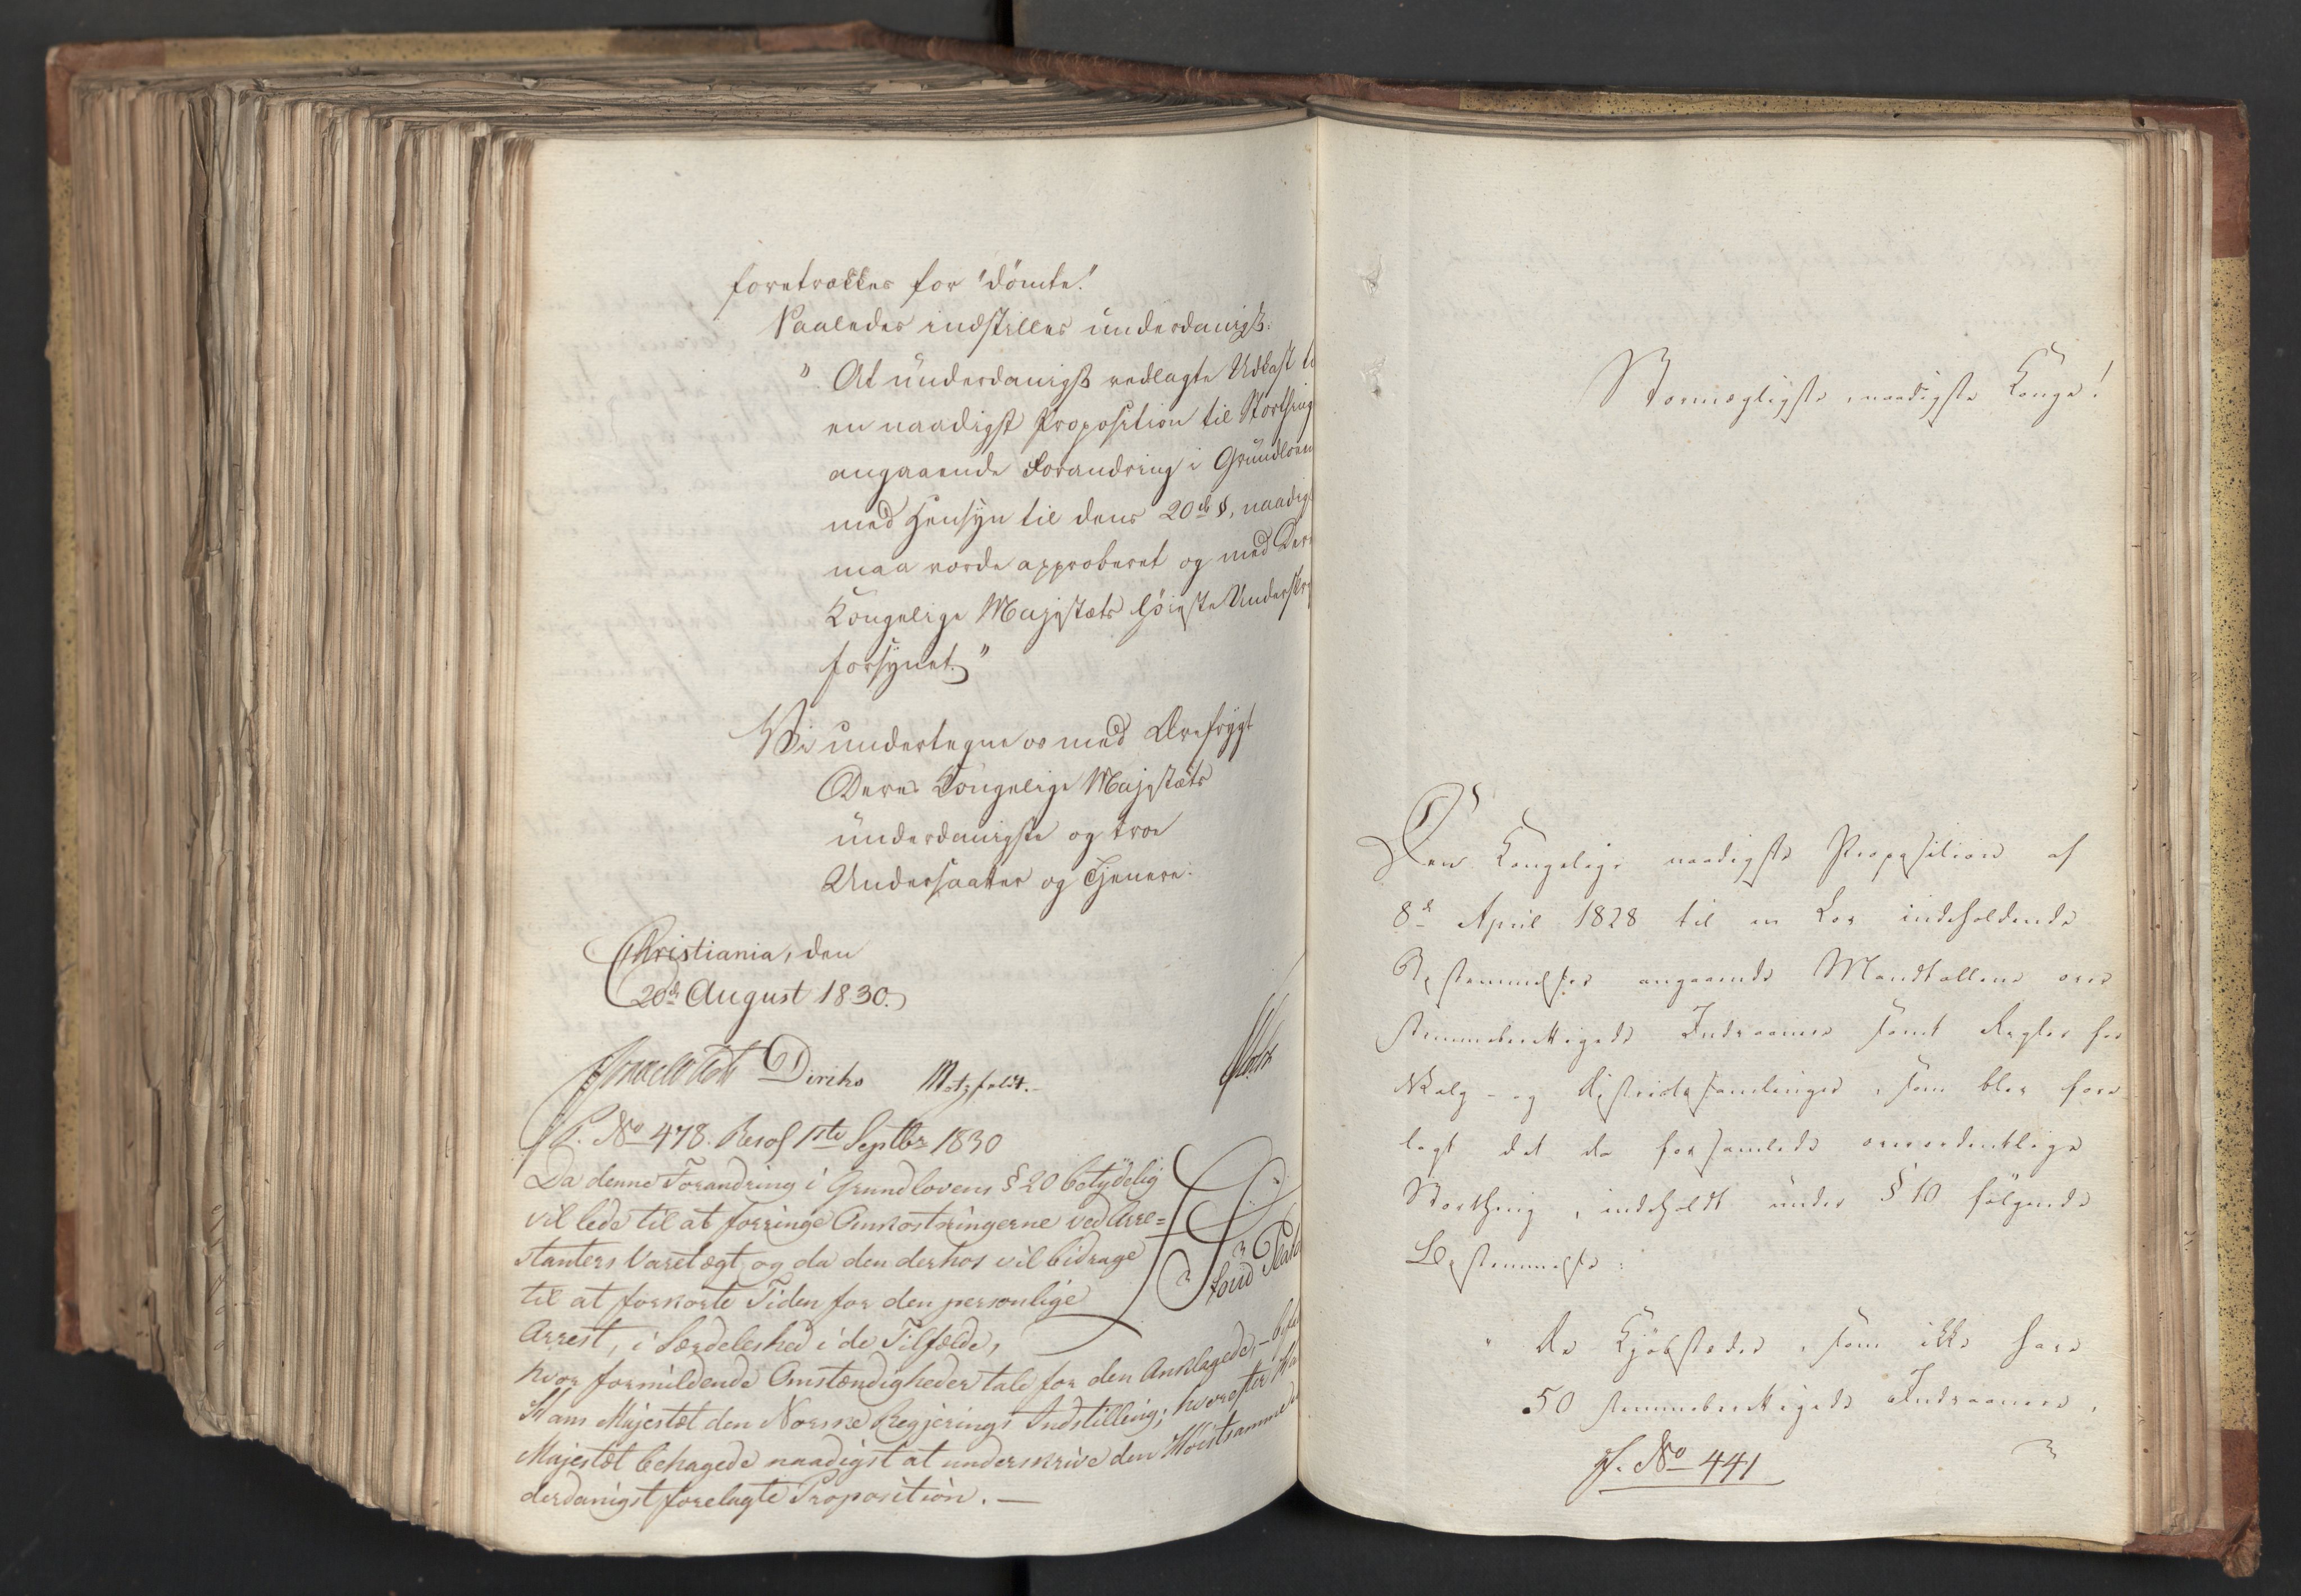 foretrækkes for "dömte".
Saaledes indstilles underdanigst:
" At underdanigst vedlagte Udkast ti
en naadigst Proposition til Storthing
angaaende Forandring i Grundloven
med Hensyn til dens 20de §, naadigst
maa vorde approberet og med Deres
Kongelige Majestæts höieste Underskr
forsynet."
Vi undertegne os med Ærefrygt
Deres Kongelige Majestæts
underdanigste og troe
Undersaatter og Tjenere.
Christiania, den
20de August 1830.
Diriks Motzfeldt.
P. No 478. Resol 1ste Septbr 1830
Da denne Forandring i Grundlovens § 20 betydelig
vil lede til at forringe Omkostningerne ved Arre=
stanters Varetægt, og da den derhos vil bidrage
til at forkorte Tiden for den personlige
Arrest, i Særdeleshed i de Tilfælde,
hvor formildende Omstændigheder tale for den Anklagede, – bifa
Hans Majestæt den Norske Regjerings Indstilling; hvorefter Ha
Majestæt behagede naadigst at underskrive den Höistsamme
derdanigst forelagte Proposition. —
Stormægtigste, naadigste Konge!
Den Kongelige naadigste Proposition af
8de April 1828 til en Lov indeholdende
Bestemmelser angaaende Mandtallene over
stemmeberettigede Indvaanere samt Regler for
Valg- og Districtsforsamlinger, som blev fore
lagt det da forsamlede overordentlige
Storthing, indeholdt under § 10 fölgende
Bestemmelse:
" De Kjöbstæder, som ikke have
50 stemmeberettigede Indvaanere,
J. No 441